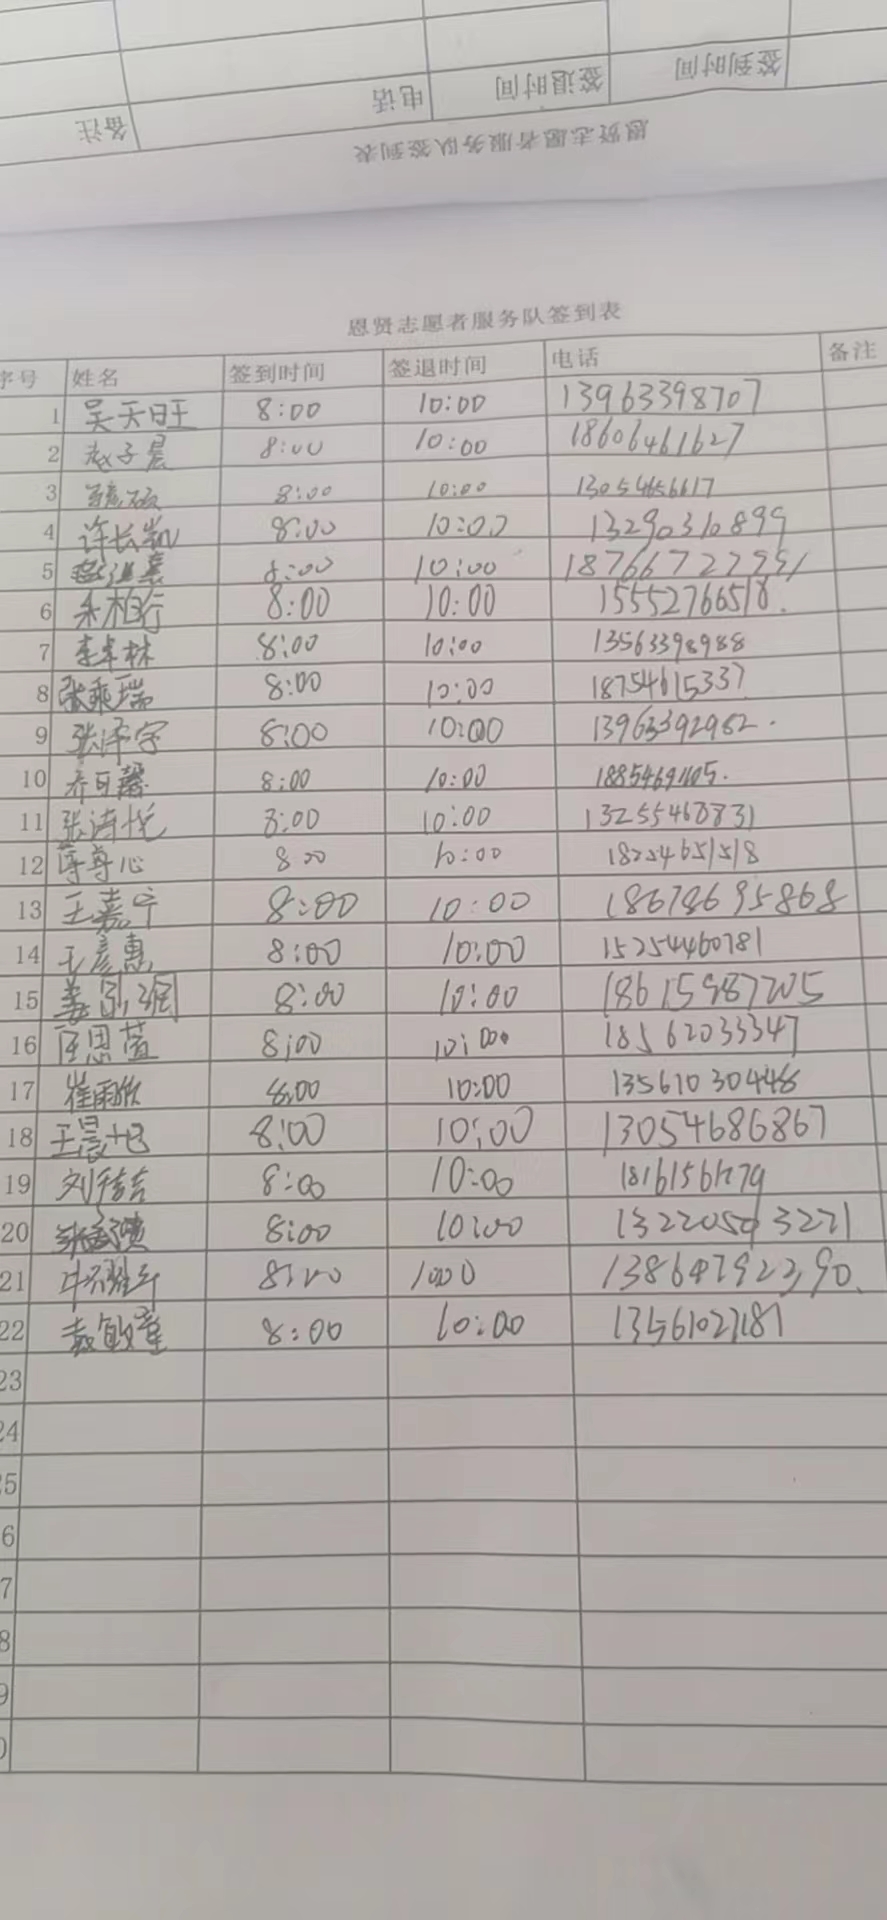 签到时间 签退时间 电话 备注
恩贤志愿者服务队签到表
恩贤志愿者服务队签到表
序号 姓名 签到时间 签退时间 电话 备注
1 吴天旺 8:00 10:00 13963398707
2 赵子晨 8:00 10:00 18606461627
3 8:00 10:00 13054656617
4 许长凯 8:00 10:00 13290310899
5 8:00 10:00
6 8:00 10:00 15552766518
7 李卓林 8:00 10:00 13563398988
8 张乘瑞 8:00 10:00 18754615337
9 张泽宇 8:00 10:00 13963392982
10 乔日馨 8:00 10:00
11 张诗悦 8:00 10:00 13255468831
12 8:00 10:00 18254651518
13 王嘉宁 8:00 10:00 18678695868
14 王彦惠 8:00 10:00 15254460781
15 8:00 10:00 18615987205
16 8:00 10:00 18562033347
17 崔雨欣 8:00 10:00
18 8:00 10:00 13054686867
19 8:00 10:00
20 8:00 10:00 13220593271
21 8:00 10:00 13864792390
22 8:00 10:00 13561027187
23
24